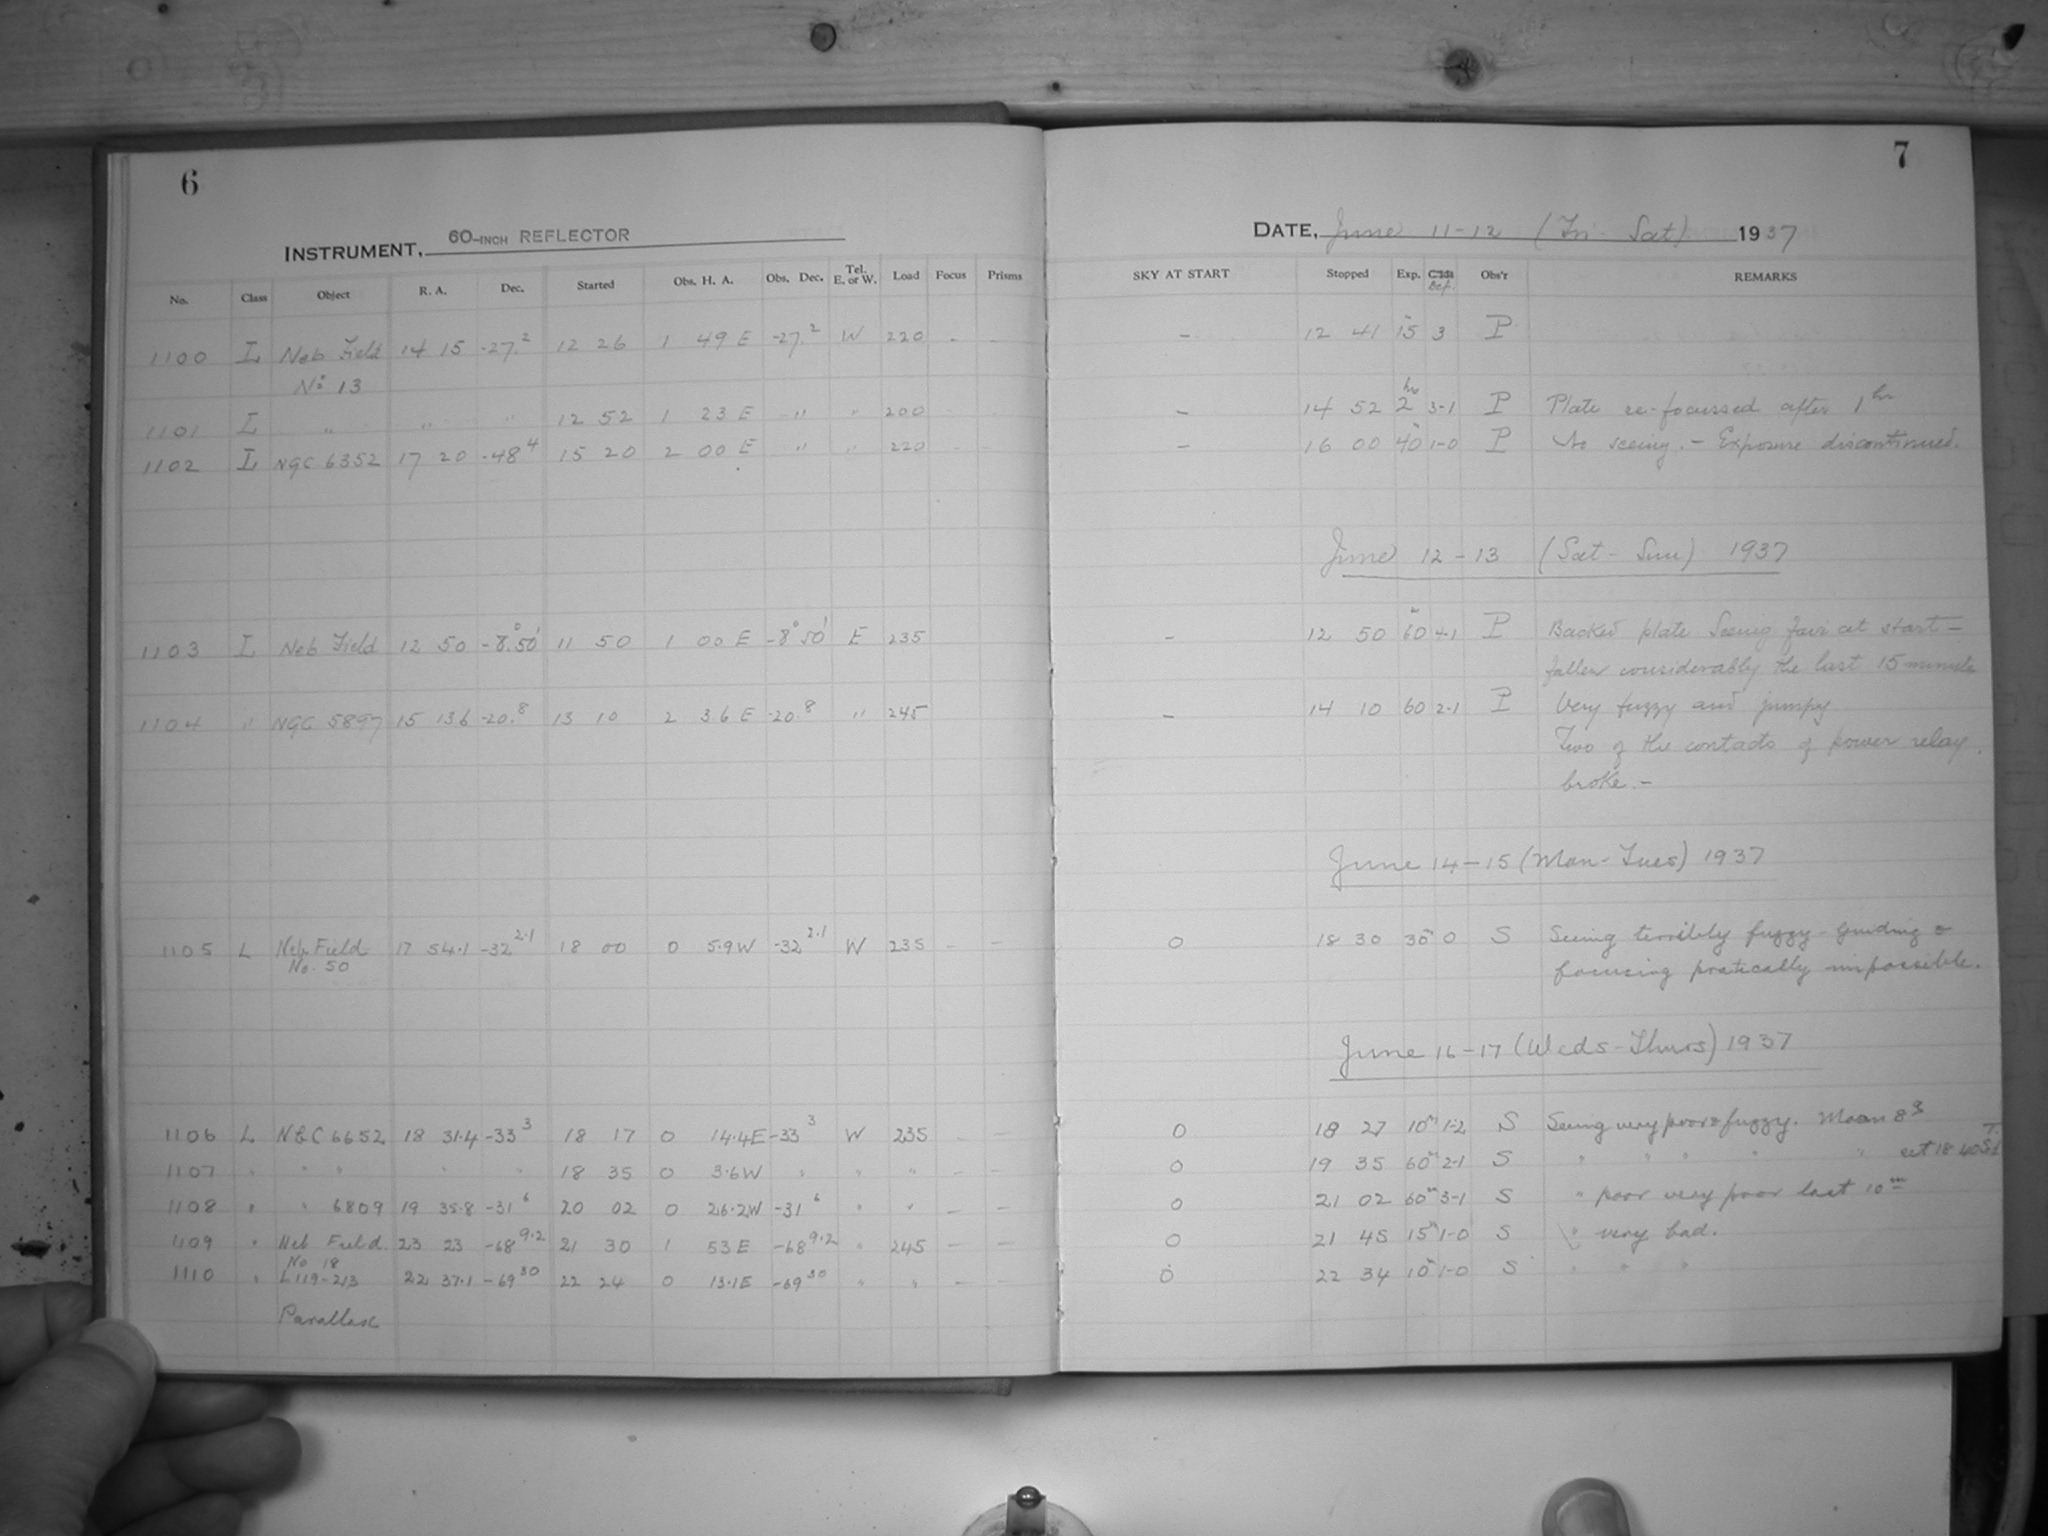 6
INSTRUMENT, 60-INCH REFLECTOR
No. Class Object R. A. Dec. Started Obs. H. A. Obs. Dec. Tel. E. or W. Load Focus Prisms
1100 L Neb Field 14 15 -27.2 12 26 1 49 E -27.2 W 220 - -
No 13
1101 L " " " 12 52 1 23 E " " 200
1102 L NGC 6352 17 20 -48 4 15 20 2 00 E " " 220
1103 L Neb Field 12 50 -8° 50' 11 50 1 00 E -8° 50' E 235
1104 " NGC 5897 15 13.6 -20.8 13 10 2 3.6 E -20.8 " 245
1105 L Neb. Field 17 54.1 -32 2.1 18 00 0 5.9 W -32 2.1 W 235 - -
No. 50
1106 L NGC 6652 18 31.4 -33 3 18 17 0 14.4 E -33 3 W 235 - -
1107 " " " " " 18 35 0 3.6 W " " " - -
1108 " " 6809 19 35.8 -31 6 20 02 0 26.2 W -31 6 " " - -
1109 " Neb Field 23 23 -68 9.2 21 30 1 53 E -68 9.2 " 245 - -
No 18
1110 " L119-213 22 37.1 -69 30 22 24 0 13.1 E -69 30 " " - -
Parallax
7
DATE, June 11-12 (Fri - Sat) 1937
SKY AT START Stopped Exp. Obs'r REMARKS
Def.
- 12 41 15 m 3 P
- 14 52 2 hrs 3-1 P Plate re-focussed after 1 hr
- 16 00 40 m 1-0 P No seeing. - Exposure discontinued.
June 12-13 (Sat - Sun) 1937
- 12 50 60 m 4-1 P Backed plate Seeing fair at start -
fallen considerably the last 15 minute
- 14 10 60 2-1 P Very fuzzy and jumpy
Two of the contacts of power relay
broke. -
June 14-15 (Mon-Tues) 1937
0 18 30 30 m 0 S Seeing terribly fuzzy - guiding &
focusing pratically impossible.
June 16-17 (Weds-Thurs) 1937
0 18 27 10 m 1-2 S Seeing very poor & fuzzy. Moon 8
0 19 35 60 m 2-1 S " " " " " set 18 40
0 21 02 60 m 3-1 S " poor very poor last 10 m
0 21 45 15 m 1-0 S " very bad.
0 22 34 10 m 1-0 S " " "